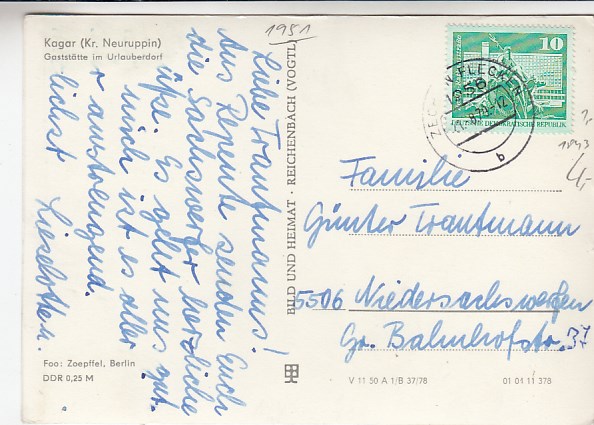 1951
Kagar (Kr. Neuruppin)
Gaststätte im Urlauberdorf
Liebe Trautmanns!
Aus Repente senden Euch
die Sachswerfer herzliche
üße. Es geht uns gut.
mich ist es aller
r anstrengend.
lichst
Lieselotte u.
Foto: Zoepffel, Berlin
DDR 0,25 M
BILD UND HEIMAT · REICHENBACH (VOGTL
10
DEUTSCHE DEMOKRATISCHE REPUBLIK
FLECKEN
b
1893
4,-
Familie
Günter Trautmann
5506 Niedersachswerfen
Gr. Bahnhofstr. 37
V 11 50 A 1/B 37/78
01 01 11 378